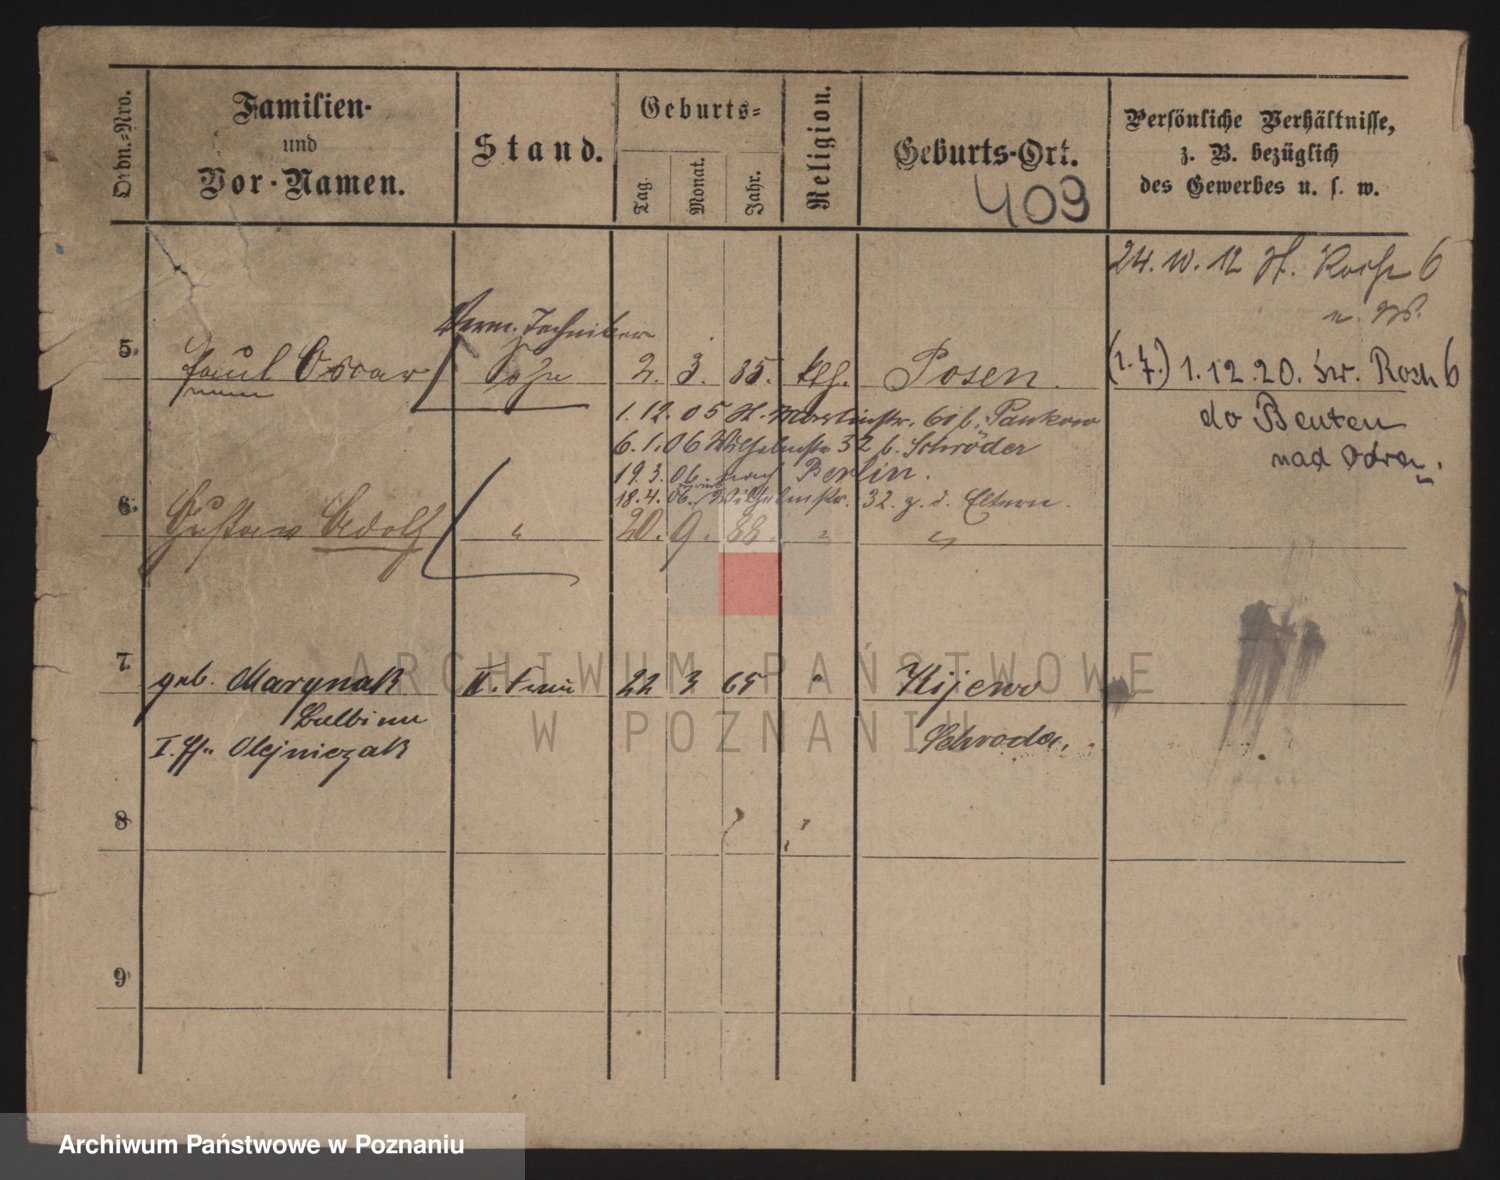 Ordn.-Nro.
Familien-
und
Vor-Namen.
Stand.
Geburts-
Tag.
Monat.
Jahr.
Religion.
Geburts-Ort.
Persönliche Verhältnisse,
z. B. bezüglich
des Gewerbes u. s. w.
409
24. 10. 12 H. 6
Verm. Techniker
5. Paul Oscar Sohn 2. 3. 85. Posen. (1. 7.) 1. 12. 20. Św. Roch 6
do Beuten
nad Odrą.
1. 12. 05 St. Martinstr. 60 b. Pankow
6. 1. 06 Wilhelmstr 32 b. Schröder
19. 3. 06 nach Berlin.
18. 4. 06. Wilhelmstr. 32 z. d. Eltern.
6. Gustav Adolf " 20. 9. 88. " "
7. geb. Marynak II. Frau 22 3 65 " Kijewo
Balbina
Schroda.
I. Olejniczak
8
9
ARCHIWUM PAŃSTWOWE
W POZNANIU
Archiwum Państwowe w Poznaniu